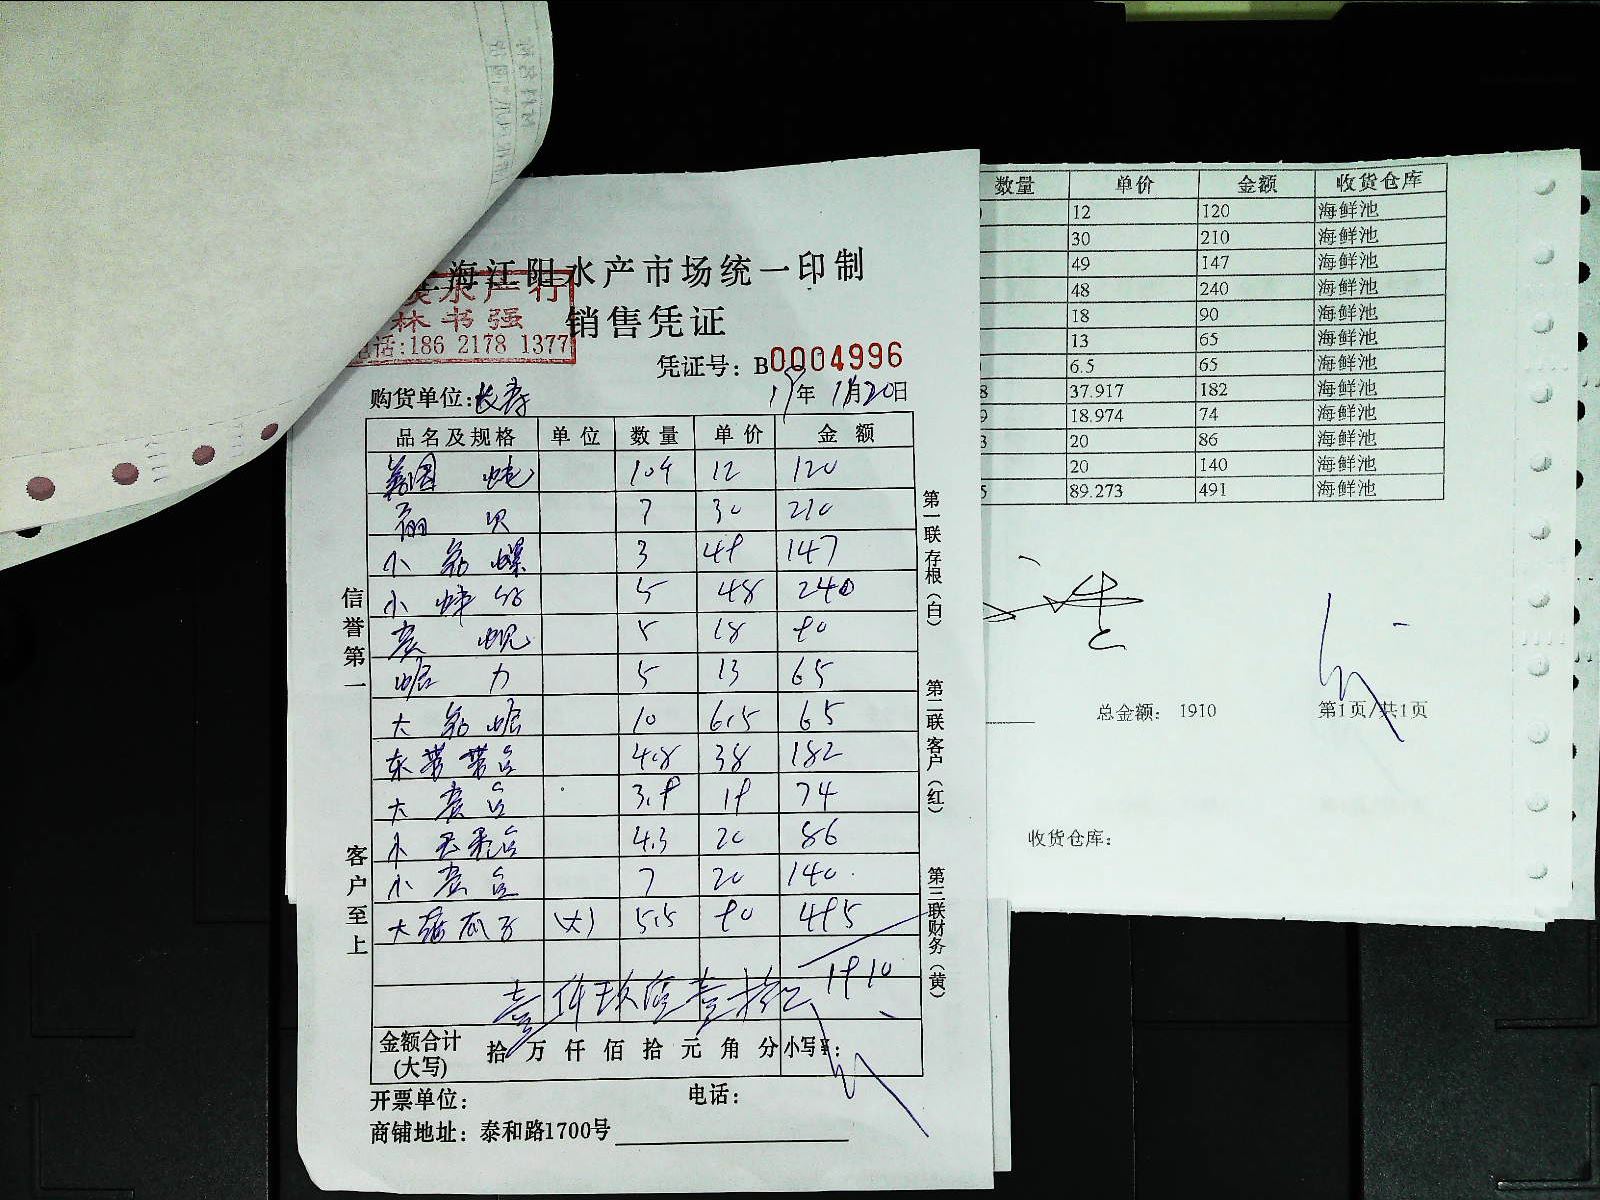 海江阳水产市场统一印制
水产行
林书强
电话:186 2178 1377
销售凭证
凭证号：B0004996
购货单位:长寿
19年 1月20日
品名及规格 单位 数量 单价 金额
美国 10斤 12 120
贝 7 30 210
小 螺 3 49 147
小 5 48 240
黄 蚬 5 18 90
力 5 13 65
大 10 6.5 65
东 4.8 38 182
大黄 3.9 19 74
小 4.3 20 86
小黄 7 20 140
大 瓜子 (大) 5.5 90 495
壹仟玖佰壹拾元 1910
金额合计
(大写)
拾 万 仟 佰 拾 元 角 分 小写¥：
开票单位：
电话：
商铺地址：泰和路1700号
信誉第一
客户至上
第一联存根（白）
第二联客户（红）
第三联财务（黄）
数量 单价 金额 收货仓库
12 120 海鲜池
30 210 海鲜池
49 147 海鲜池
48 240 海鲜池
18 90 海鲜池
13 65 海鲜池
6.5 65 海鲜池
8 37.917 182 海鲜池
9 18.974 74 海鲜池
3 20 86 海鲜池
20 140 海鲜池
5 89.273 491 海鲜池
总金额： 1910
第1页/共1页
收货仓库：